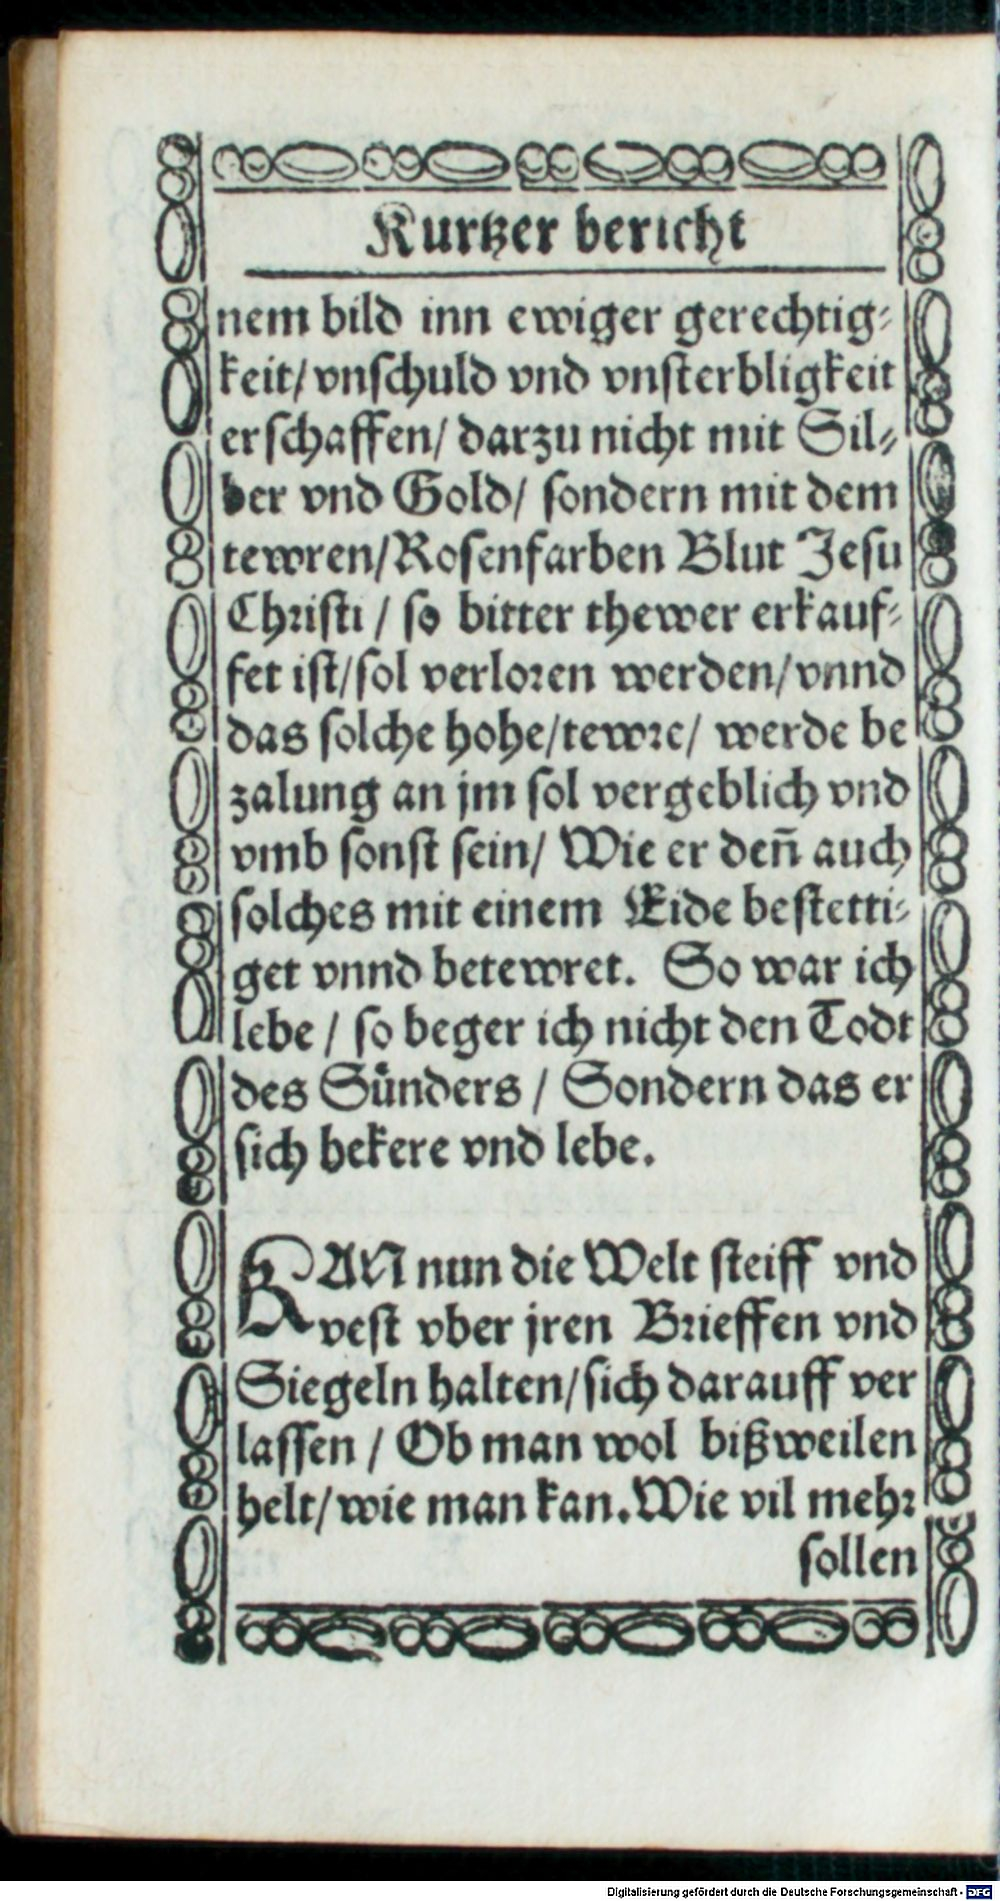 Kurtzer bericht
nem bild inn ewiger gerechtig-
keit/ vnschuld vnd vnsterbligkeit
erschaffen/ darzu nicht mit Sil-
ber vnd Gold/ sondern mit dem
tewren/Rosenfarben Blut Jesu
Christi / so bitter thewer erkauf-
fet ist/sol verloren werden/vnnd
das solche hohe/tewre/ werde be
zalung an jm sol vergeblich vnd
vmb sonst sein/ Wie er deñ auch
solches mit einem Eide bestetti-
get vnnd betewret. So war ich
lebe / so beger ich nicht den Todt
des Sünders / Sondern das er
sich bekere vnd lebe.
KAN nun die Welt steiff vnd
vest vber jren Brieffen vnd
Siegeln halten/sich darauff ver
lassen / Ob man wol bißweilen
helt/wie man kan.Wie vil mehr
sollen
Digitalisierung gefördert durch die Deutsche Forschungsgemeinschaft - DFG